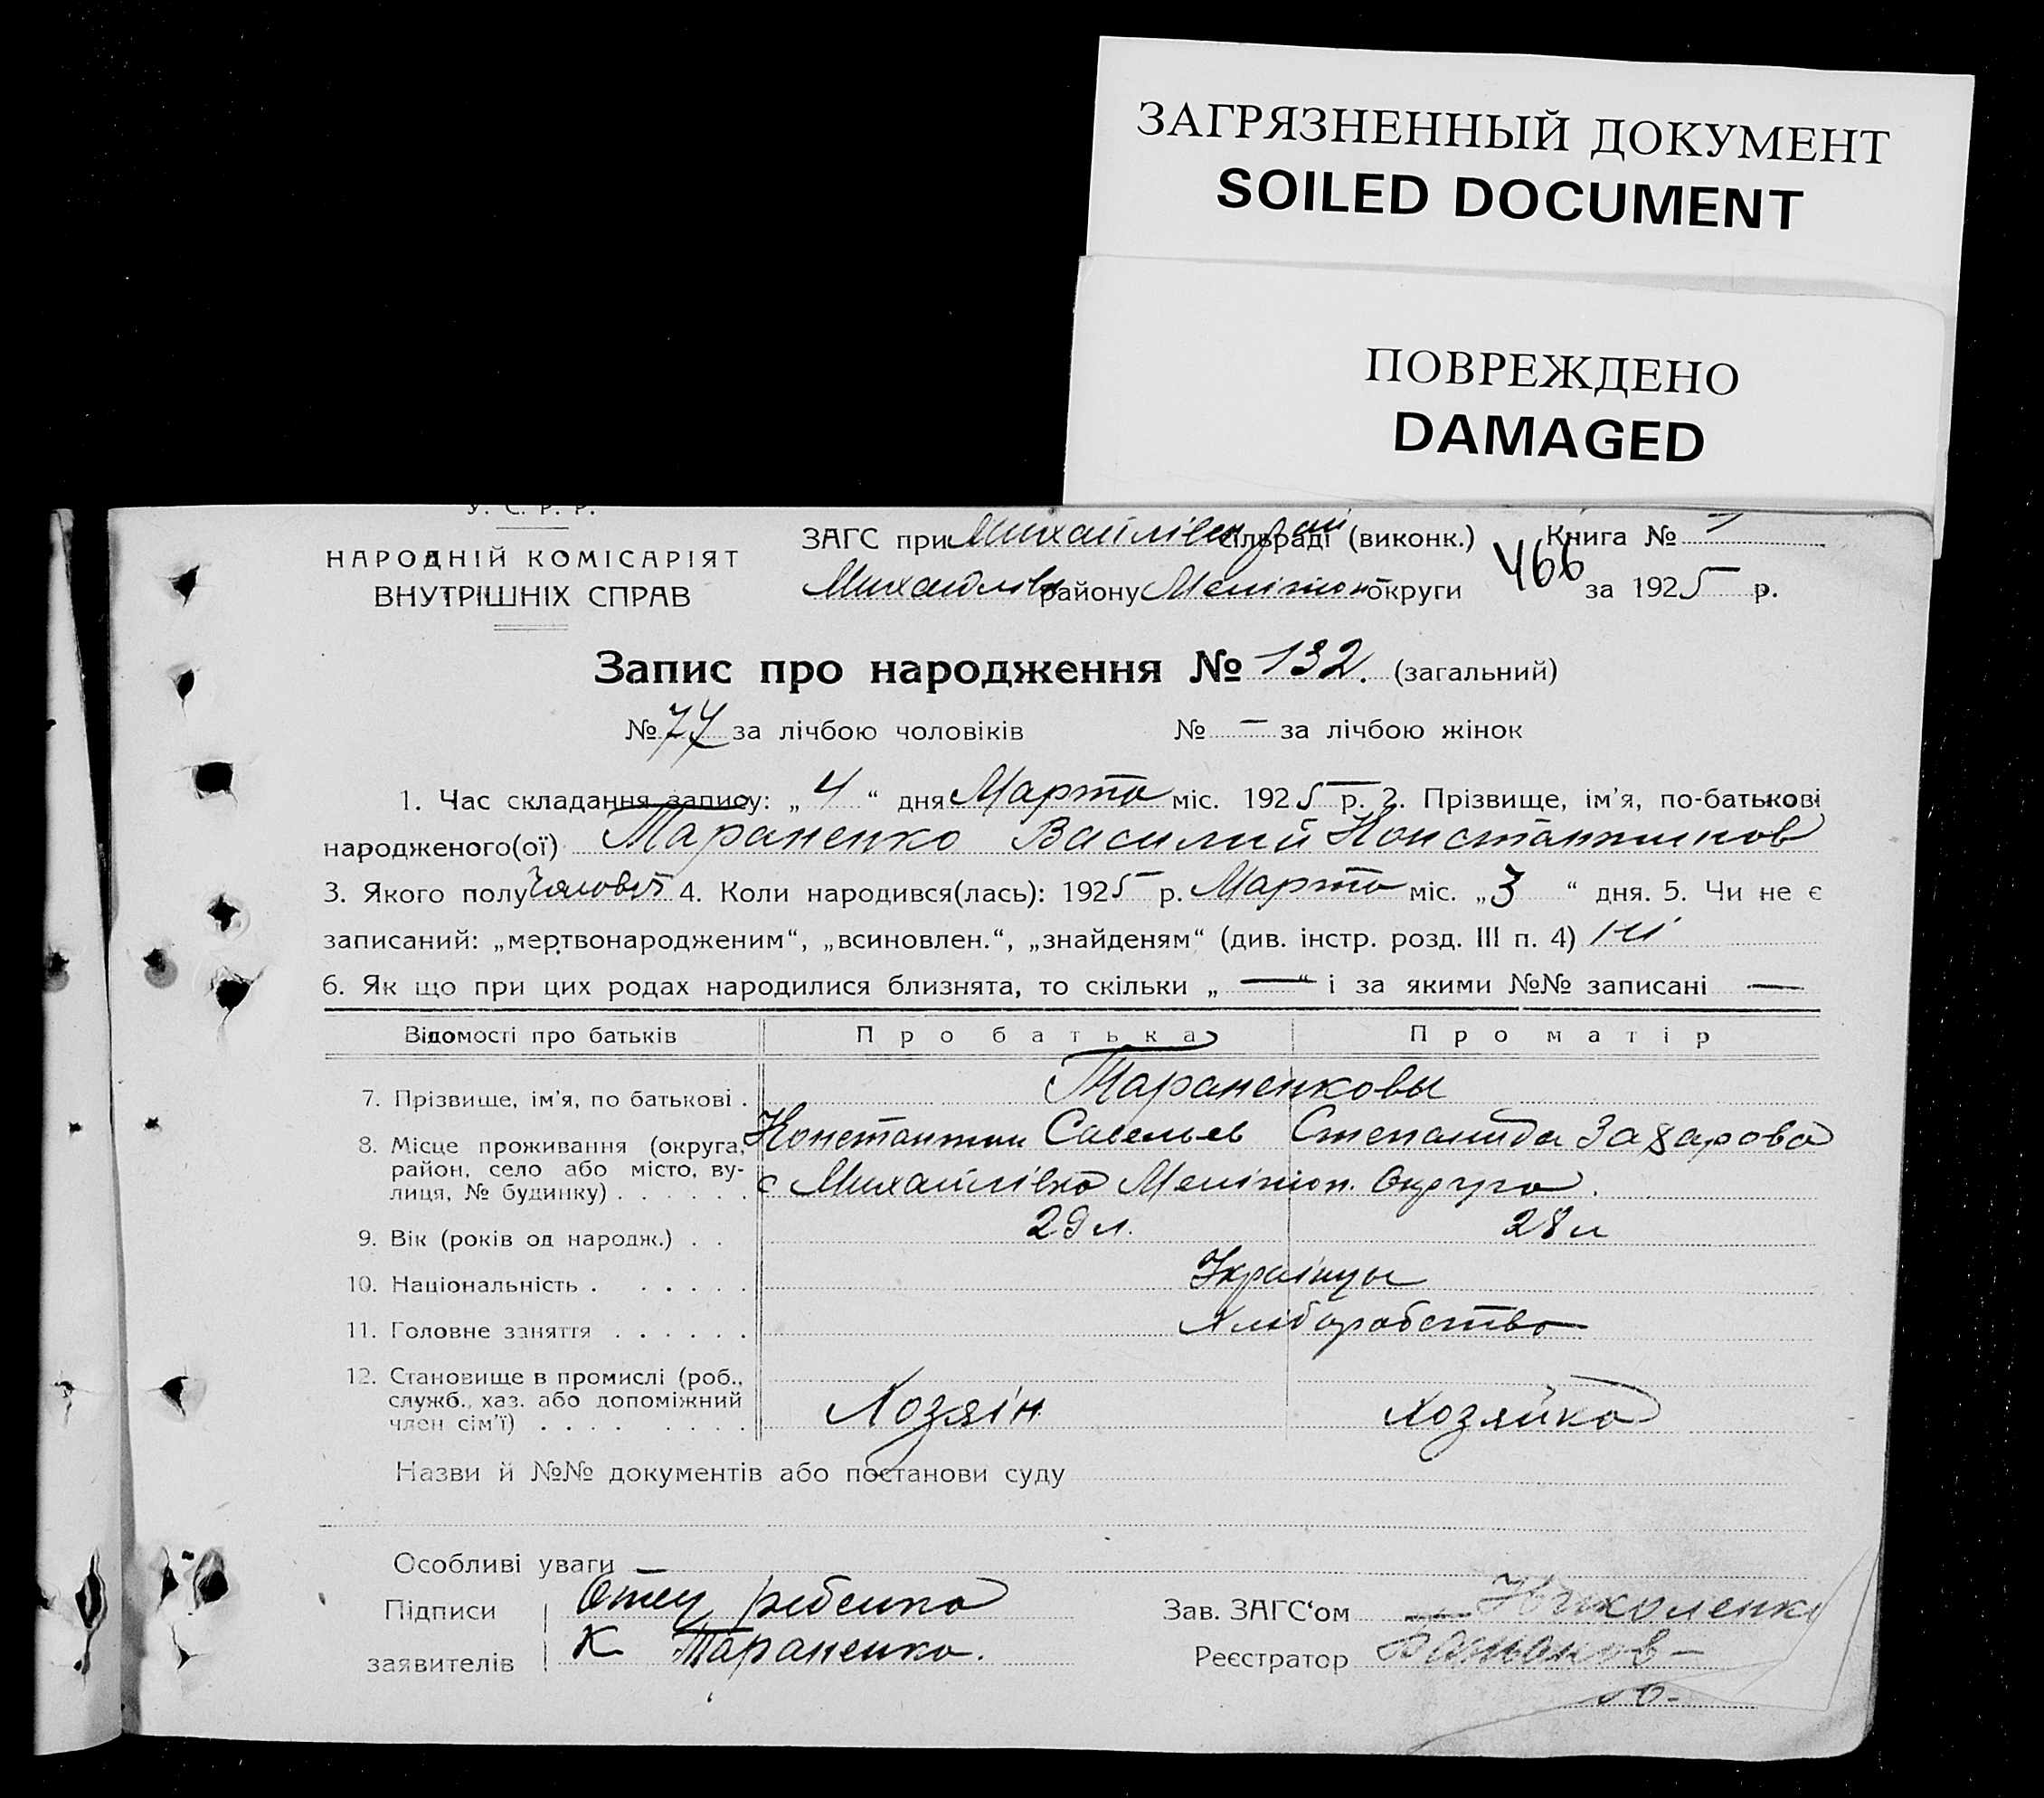 ЗАГРЯЗНЕННЫЙ ДОКУМЕНТ
SOILED DOCUMENT
ПОВРЕЖДЕНО
DAMAGED
У. С. Р. Р.
НАРОДНІЙ КОМІСАРІЯТ
ВНУТРІШНІХ СПРАВ
ЗАГС при Михайлівск сільраді (виконк.) Книга № 1
Михайлів району Мелітоп округи 466 за 1925 р.
Запис про народження № 132. (загальний)
№ 74 за лічбою чоловіків № — за лічбою жінок
1. Час складання запису: „ 4 “ дня Марта міс. 1925 р. 2. Прізвище, ім’я, по-батькові
народженого(ої) Тараненко Василий Константинов
3. Якого полу Чоловіч 4. Коли народився(лась): 1925 р. Марта міс. „ 3 “ дня. 5. Чи не є
записаний: „мертвонародженим“, „всиновлен.“, „знайденям“ (див. інстр. розд. III п. 4) ні
6. Як що при цих родах народилися близнята, то скільки „ — “ і за якими №№ записані —
Відомості про батьків Про батька Про матір
7. Прізвище, ім’я, по батькові . Тараненковы
Константин Савельев Степанида Захарова
8. Місце проживання (округа, район, село або місто, ву-
лиця, № будинку) . . . . . . с Михайлівка Мелітоп. Округа.
9. Вік (років од народж.) . . 29 л. 28 л
10. Національність . . . . . . Українцы
11. Головне заняття . . . . . . Хліборобство
12. Становище в промислі (роб.,
служб., хаз. або допоміжний
член сім’ї) . . . . . . . . Хозяін Хозяйка
Назви й №№ документів або постанови суду
Особливі уваги
Підписи Отец ребенка Зав. ЗАГС‘ом Николенко
заявителів К Тараненко. Реєстратор